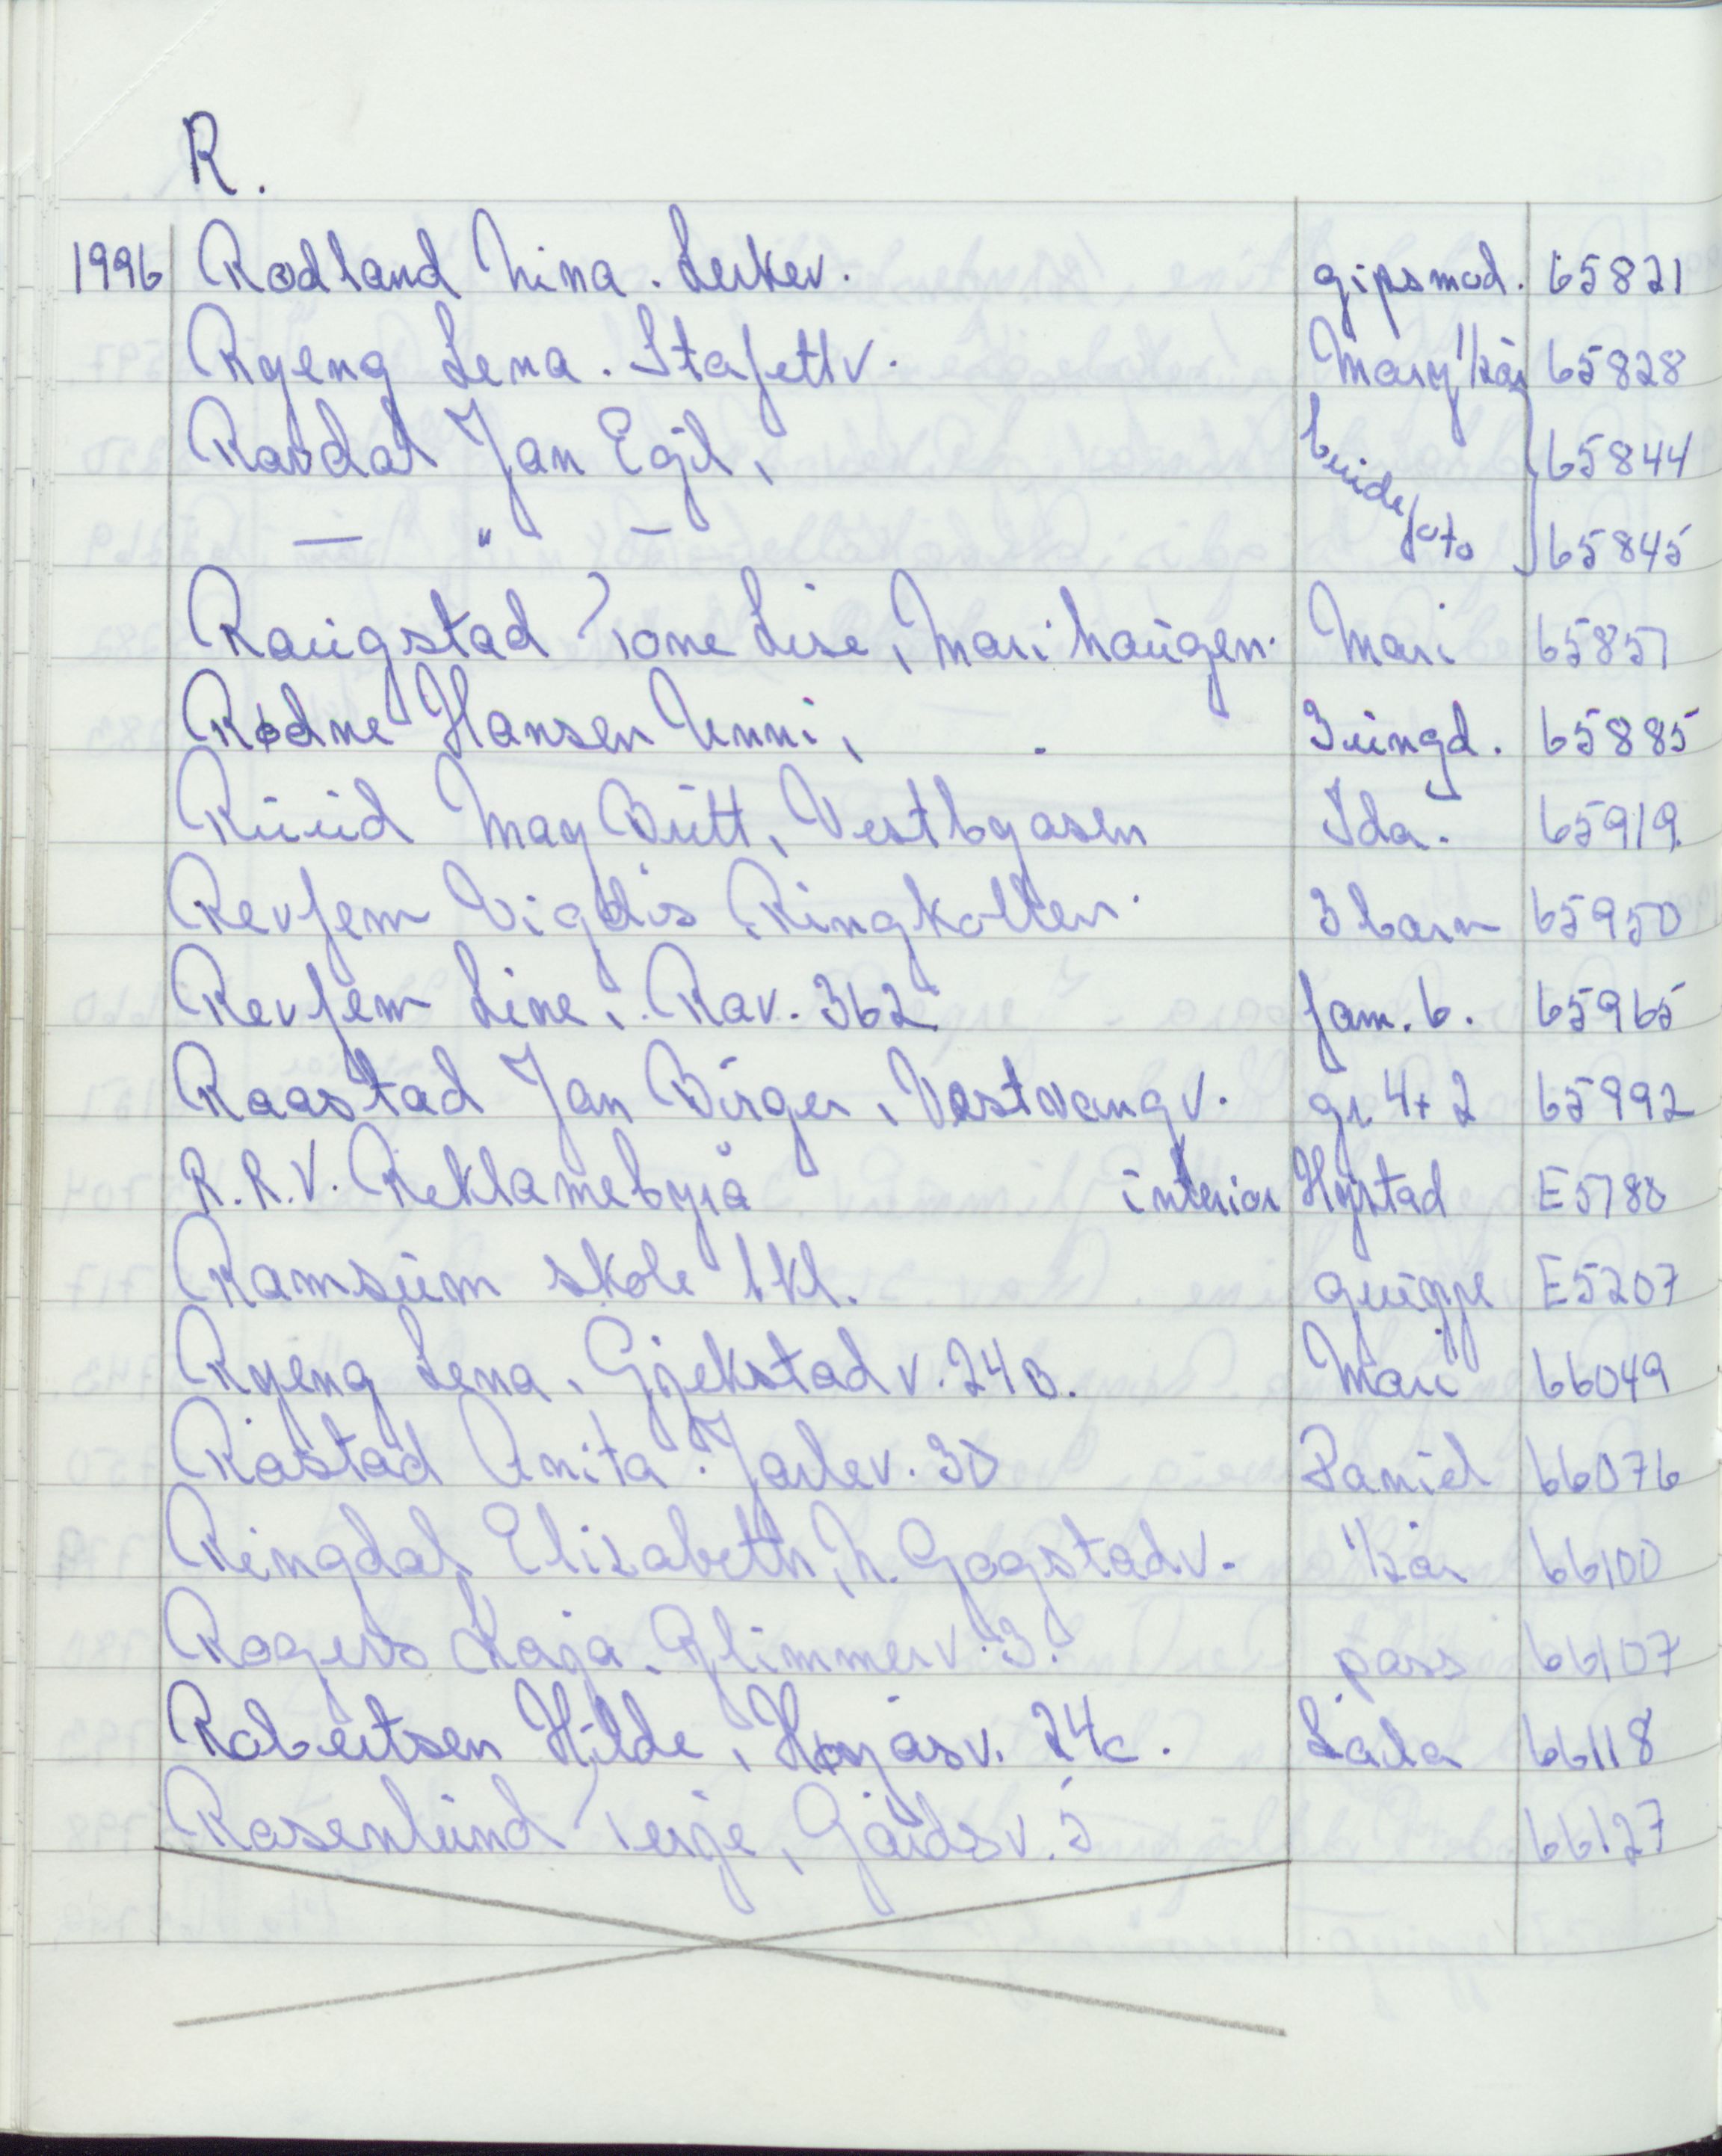 R.
1996 Rødland Nina. Lerkev. gipsmod. 65821
Ryeng Lena. Stafettv. Mary 1/2år 65828
Ravdal Jan Egil, brude 65844
— " — foto 65845
Raugstad Tone Lise, Marihaugen. Mari 65851
Rødne Hansen Unni, 3 ungd. 65885
Ruud May Britt, Vestbyåsen Ida. 65919.
Revfem Vigdis Ringkollen. 3 barn 65950
Revfem Line, Rav. 362 fam. 6. 65965
Raastad Jan Birger, Vestvangv. gr. 4+2 65992
R.R.V. Reklamebyrå interiør Hystad E5180
Ramsum skole 1kl. gruppe E5207
Ryeng Lena, Gjekstadv. 24B. Mari 66049
Råstad Anita. Jarlev. 30 Daniel 66076
Ringdal Elisabeth, N. Gogstadv. 1/2år 66100
Rogers Kaja. Glimmerv. 3. pass 66107
Robertsen Hilde, Høyåsv. 24c. Laila 66118
Rosenlund Terje, Gårdsv. 5 66127